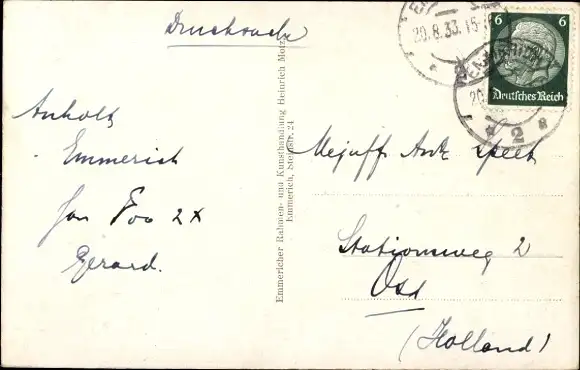 Drucksache
20.8.33.15-
6 6
Deutsches Reich
20.
* 2 a
Anholt
Emmerich
Jan Foo 2x
Gerard.
Emmericher Rahmen- und Kunsthandlung Heinrich Motz,
Emmerich, Steinstr. 24
Mejuff. Ant. Speet
Stationsweg 2
Oss
(Holland)